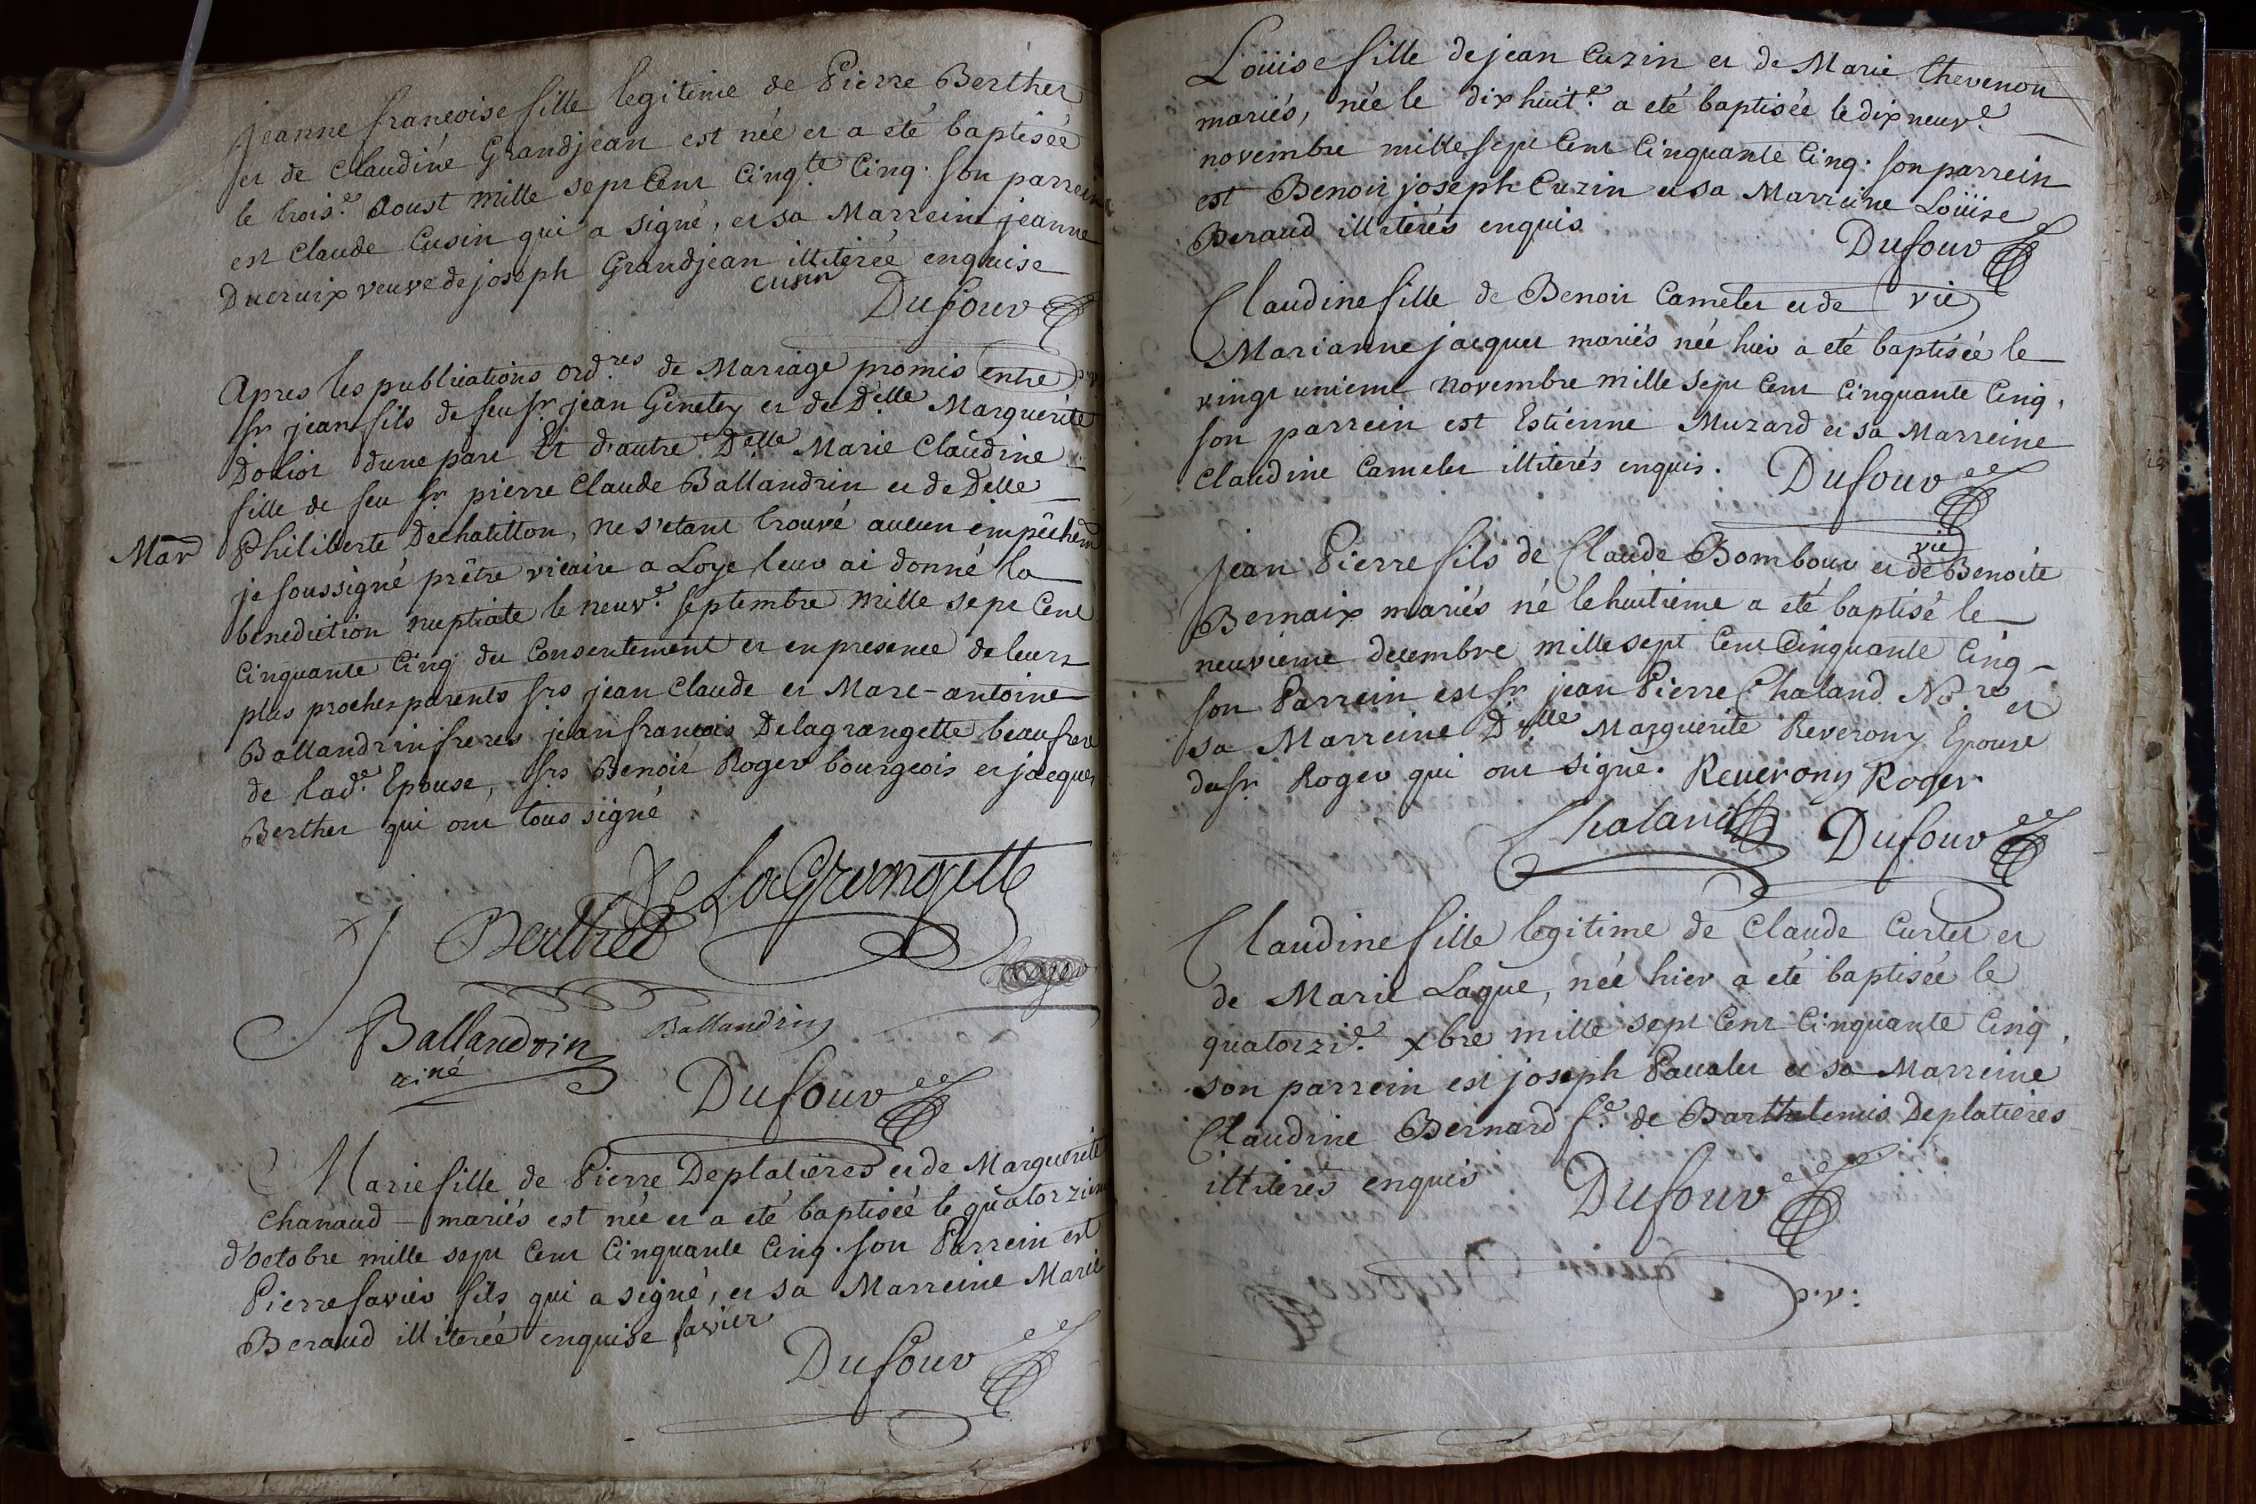 jeanne francoise fille legitime de Pierre Berthet
et de Claudine Grandjean est née et a eté baptisée
le trois.e Aoust mille sept Cent Cinq.te Cinq. son parrein
est Claude Cusin qui a signé, et sa Marreine jeanne
Ducruix veuve de joseph Grandjean illiterée enquise
cusin
Dufour
Apres les publications ord.res de Mariage promis entre
sr jean fils de feu sr jean Genetey et de Delle Marguerite
Doliot dune part Et d'autre Delle Marie Claudine
fille de feu sr pierre Claude Ballandrin et de Delle
Mar Philiberte Dechatillon, ne s'etant trouvé aucun empêchemt
je soussigné prêtre vicaire a Loye leur ai donné la
benediction nuptiale le neuv.e septembre mille sept Cent
Cinquante Cinq du Consentement et en presence de leurs
plus proches parents srs jean Claude et Marc-antoine
Ballandrin freres jean francois Delagrangette beaufrere
de lad.e Epouse, srs Benoit Roger bourgeois et jacques
Berthet qui ont tous signé
De LaGrangette
Berthet
Roger
Ballandrin
ainé
Ballandrin
Dufour
Marie fille de Pierre Deplatieres et de Marguerite
Chanaud - mariés est née et a eté baptisée le quatorzieme
d'octobre mille sept Cent Cinquante Cinq. son Parrein est
Pierre favier fils qui a signé, et sa Marreine Marie
Beraud illiterée enquise favier
Dufour
Loüise fille de jean Cuzin et de Marie Thevenon
mariés, née le dixhuit.e a eté baptisée le dixneuv.e
novembre mille sept Cent Cinquante Cinq. son parrein
est Benoit joseph Cuzin et sa Marreine Loüise
Beraud illiterés enquis
Dufour
vie
Claudine fille de Benoit Camelet et de
Marianne jacquet mariés née hier a eté baptisée le
vingt unieme novembre mille sept Cent Cinquante Cinq,
son parrein est Estienne Muzard et sa Marreine
Claudine Camelet illiterés enquis.
Dufour
vie
jean Pierre fils de Claude Bombour et de Benoite
Bernaix mariés né le huitieme a eté baptisé le
neuvieme decembre mille sept Cent Cinquante Cinq -
son Parrein est sr jean Pierre Chaland No.re et
sa Marreine Delle Marguerite Reverony Epouse
du sr Roger qui ont signé. Reuerony Roger
Chaland Dufour
Claudine fille legitime de Claude Curtet et
de Marie Laque, née hier a eté baptisée le
quatorzi.e xbre mille sept Cent Cinquante Cinq,
son parrein est joseph Pauatet et sa Marreine
Claudine Bernard f.e de Barthelemis Deplatieres
illiterés enquis
Dufour